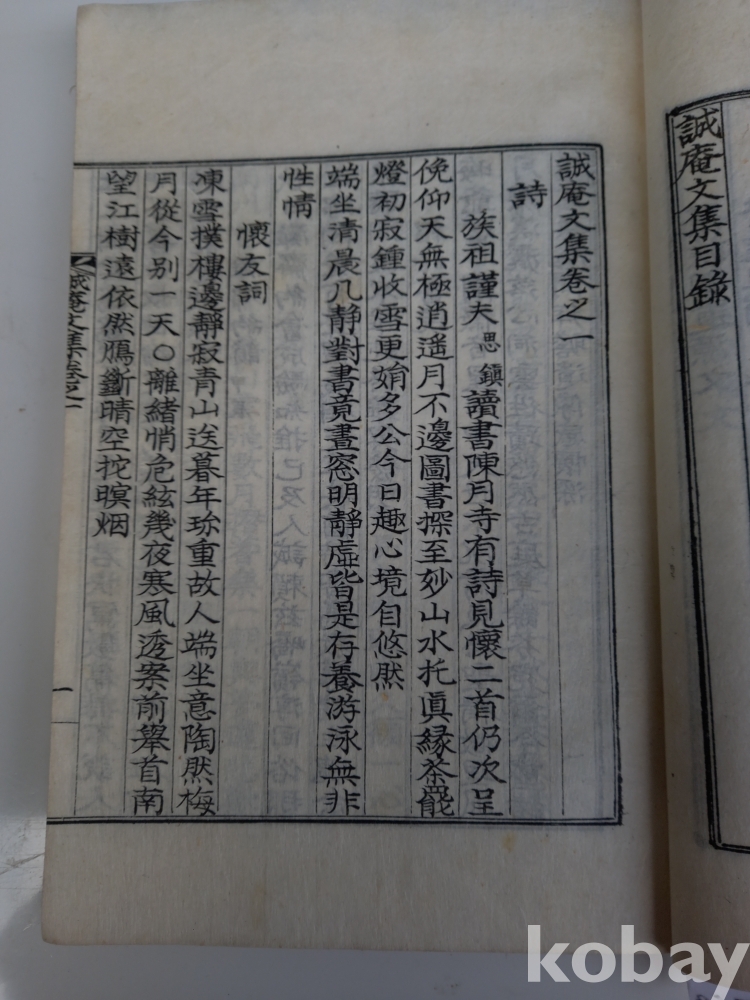 誠庵文集目錄
誠庵文集卷之一
詩
族祖謹夫思鎮讀書陳月寺有詩見懷二首仍次呈
俛仰天無極逍遥月不邊圖書探至妙山水托眞緣茶罷
燈初寂鍾收雪更姢多公今日趣心境自悠然
端坐清晨几靜對書竟晝窓明靜虛皆是存養游泳無非
性情
懷友詞
凍雪撲樓邊靜寂青山送暮年珎重故人端坐意陶然梅
月從今別一天○離緒悄危絃幾夜寒風透案前擧首南
望江樹遠依然鴈斷晴空挖暝烟
誠庵文集卷之一
一
kobay